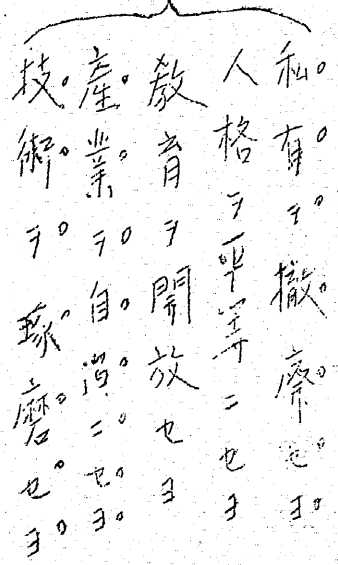 私有ヲ撤廃セヨ
人格ヲ平等ニセヨ
敎育ヲ開放セヨ
產業ヲ自ニセヨ
技術ヲ琢磨セヨ